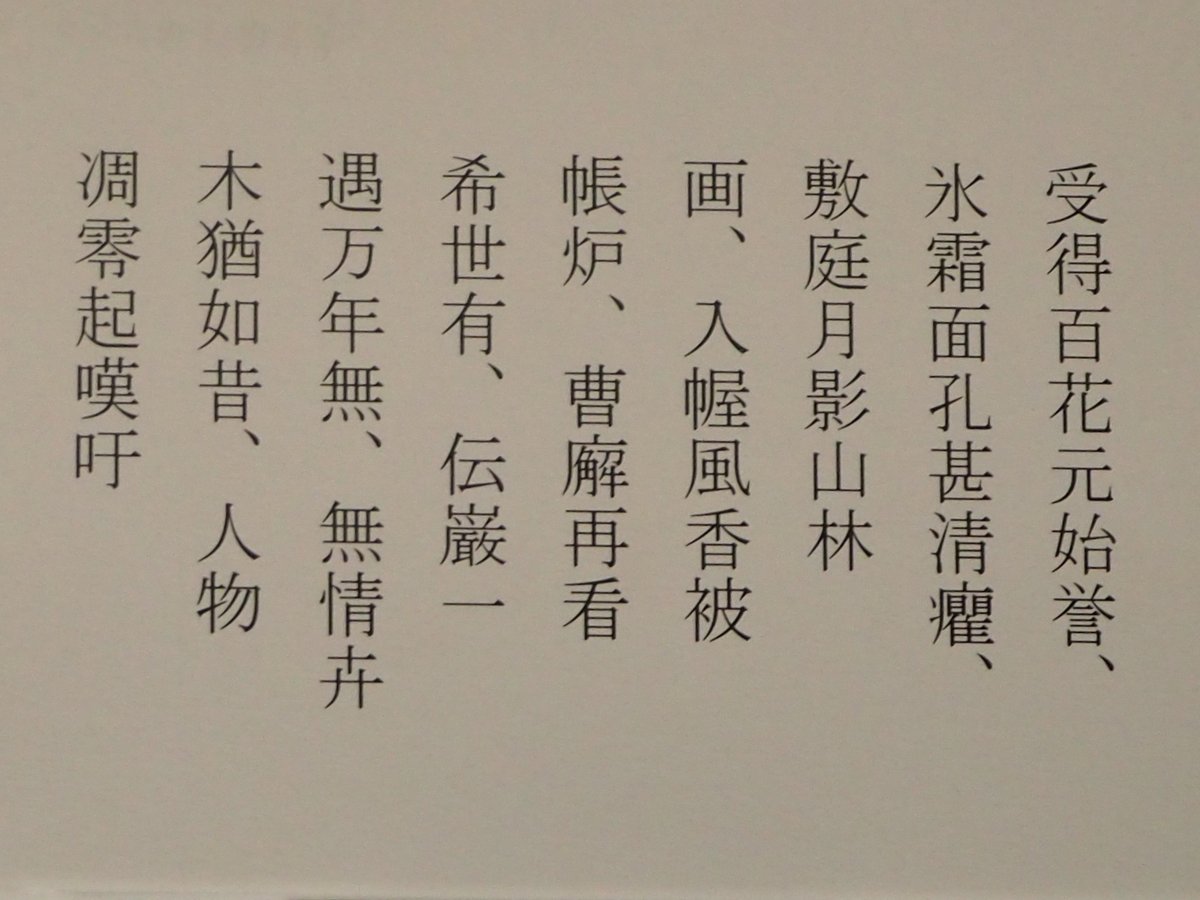 受得百花元始誉、
氷霜面孔甚清癯、
敷庭月影山林
画、入幄風香被
帳炉、曹廨再看
希世有、伝巌一
遇万年無、無情卉
木猶如昔、人物
凋零起嘆吁